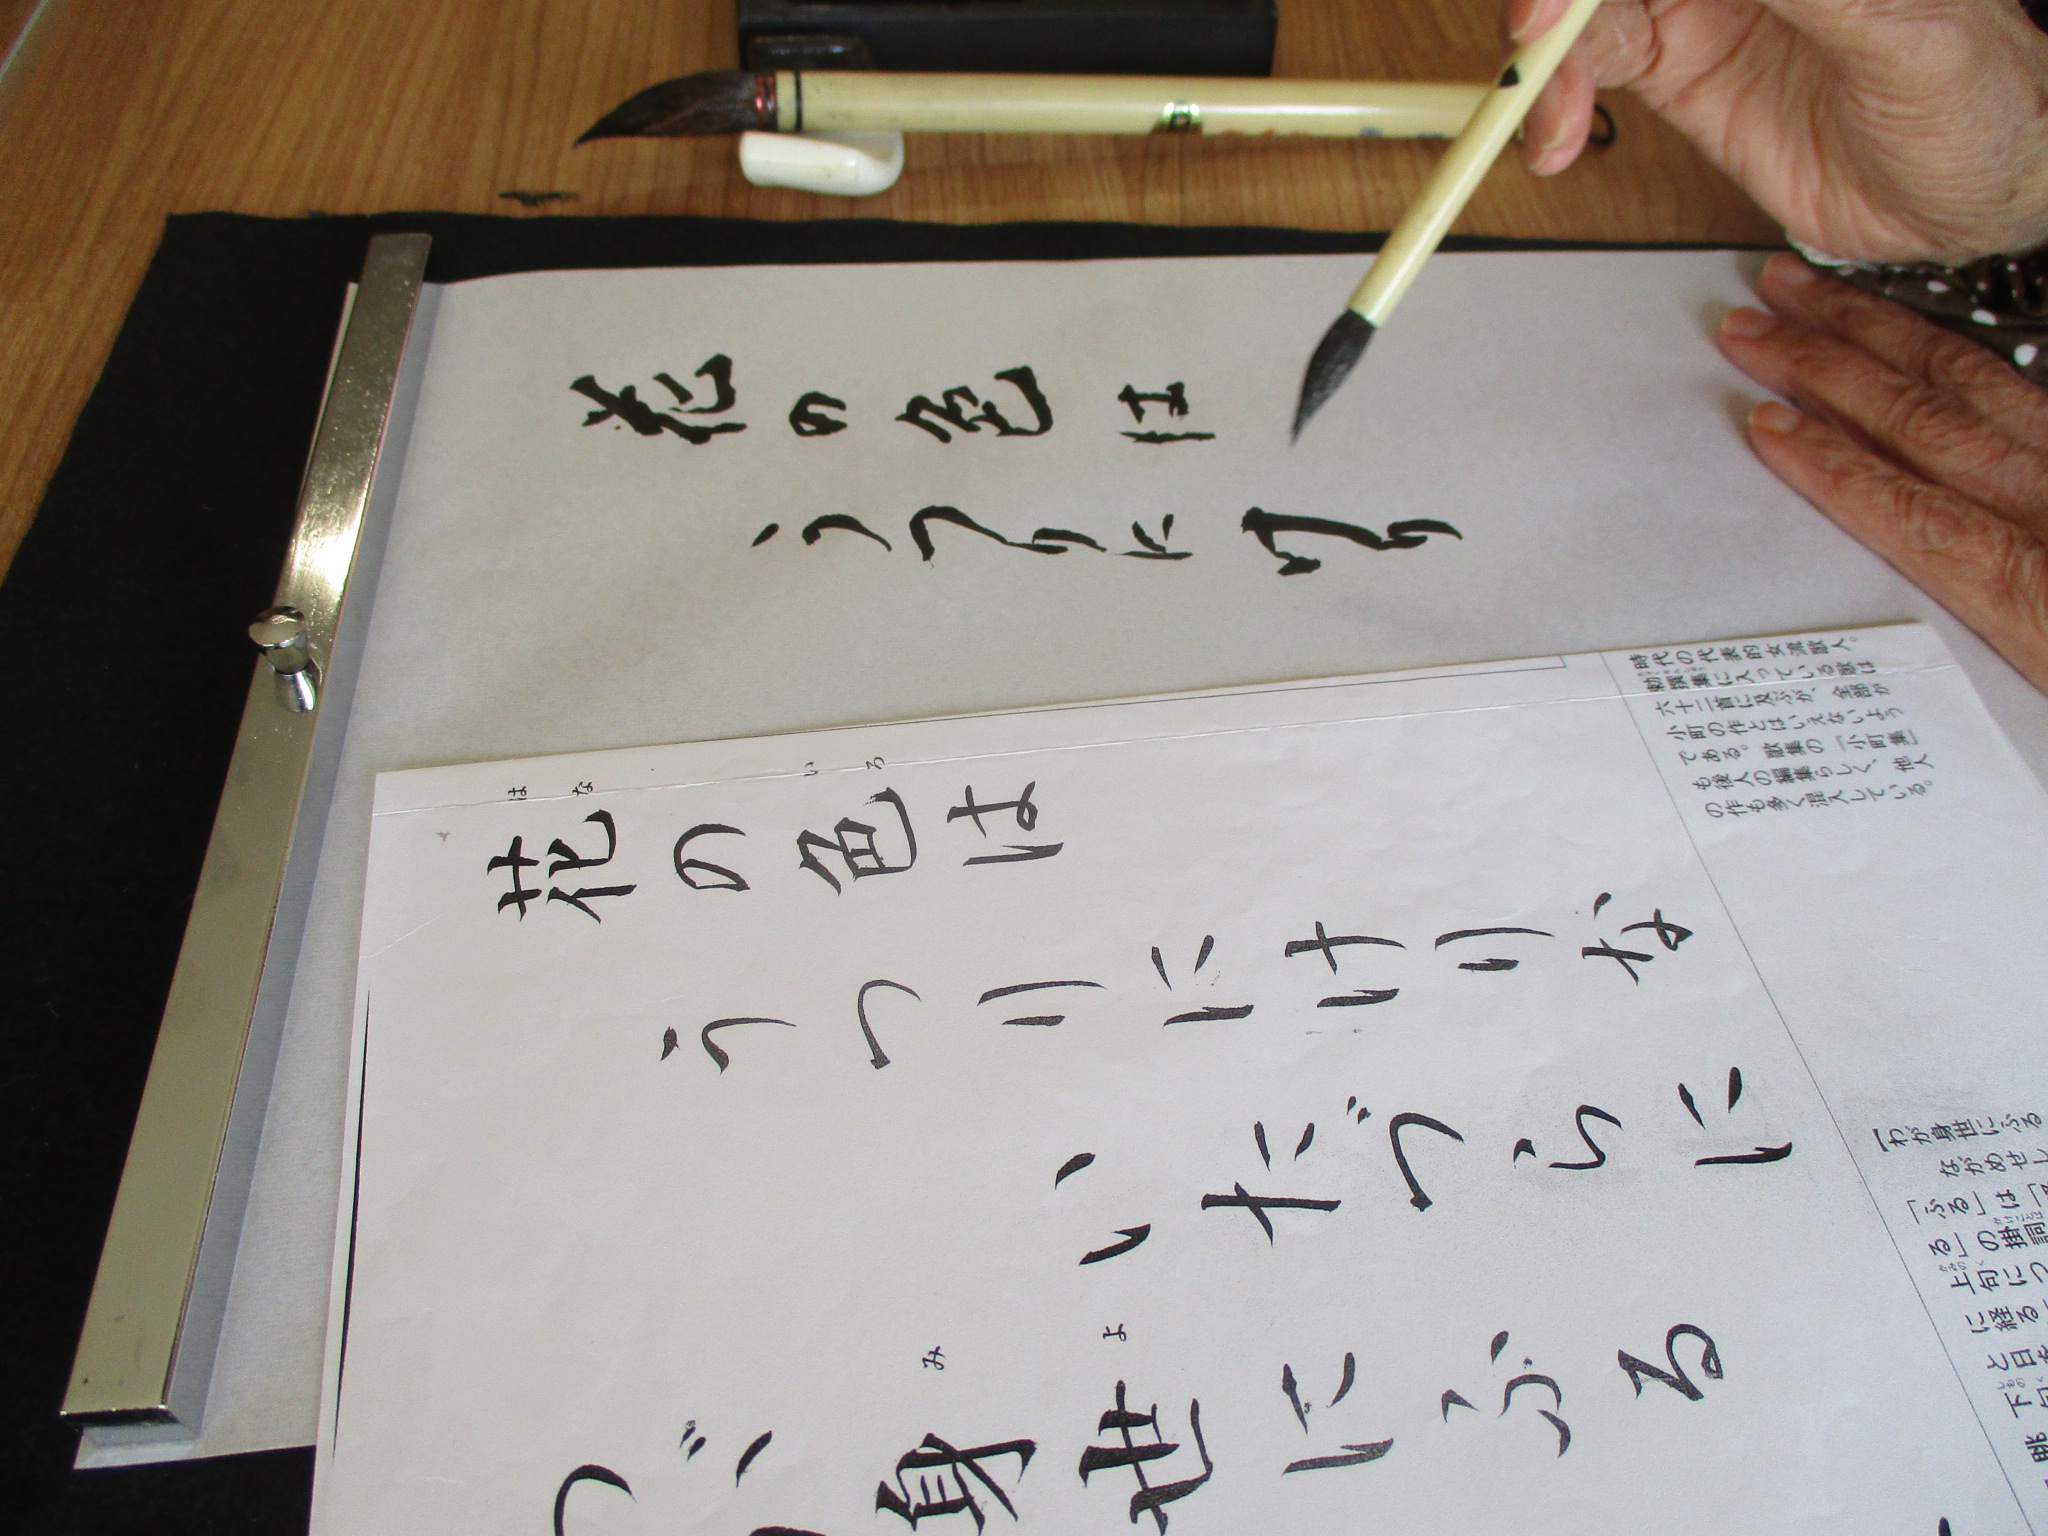 花の色は
うつりにけり
はな いろ
花の色は
うつりにけりな
いたづらに
み よ
身世にふる
時代の代表的女流歌人。
勅撰集に入っている歌は
六十二首に及ぶが、全部が
小町の作とはいえないよう
である。歌集の「小町集」
も後人の編集らしく、他人
の作も多く混入している。
【わが身世にふる
ながめせし
「ふる」は「
る」の掛詞
上句につ
に経る
と日
下